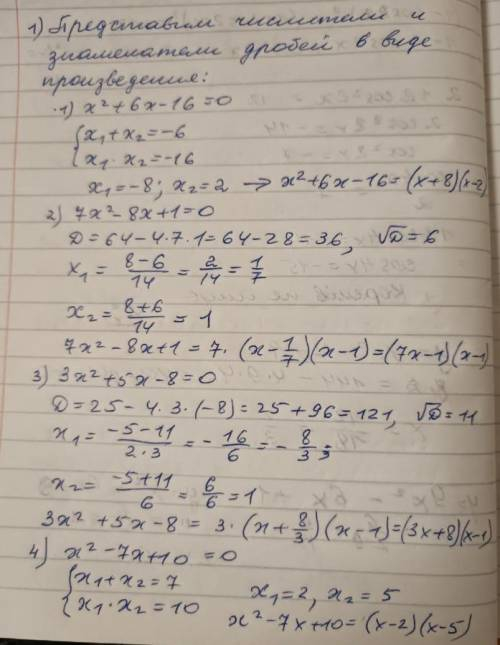 1) Представим числители и
знаменатели дробей в виде
произведения:
1) x²+6x-16=0
{x₁+x₂=-6
{x₁·x₂=-16
x₁=-8; x₂=2 → x²+6x-16=(x+8)(x-2)
2) 7x²-8x+1=0
D=64-4·7·1=64-28=36, √D=6
x₁=(8-6)/14=2/14=1/7
x₂=(8+6)/14=1
7x²-8x+1=7·(x-1/7)(x-1)=(7x-1)(x-1)
3) 3x²+5x-8=0
D=25-4·3·(-8)=25+96=121, √D=11
x₁=(-5-11)/(2·3)=-16/6=-8/3;
x₂=(-5+11)/6=6/6=1
3x²+5x-8=3·(x+8/3)(x-1)=(3x+8)(x-1)
4) x²-7x+10=0
{x₁+x₂=7
{x₁·x₂=10 x₁=2, x₂=5
x²-7x+10=(x-2)(x-5)